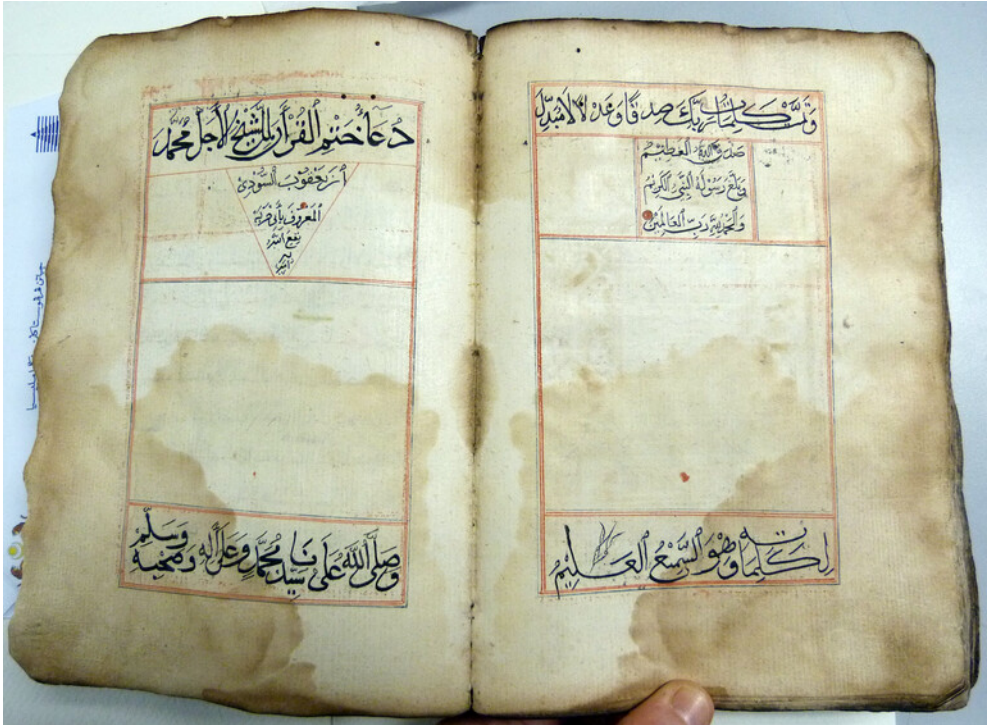 وَتَمَّتْ كَلِمَاتُ رَبِّكَ صِدْقًا وَعَدْلًا لَا مُبَدِّلَ
صدق الله العظيم
وبلغ رسوله النبي الكريم
والحمد لله رب العالمين
لِكَلِمَاتِهِ وَهُوَ السَّمِيعُ الْعَلِيمُ
دُعَآءُ خَتْمِ الْقُرْآنِ لِلشَّيْخِ الْأَجَلِّ مُحَمَّد
ابن يعقوب السودي
المعروف بأبي حربة
نفع الله
به
وَصَلَّى اللَّهُ عَلَى سَيِّدِنَا مُحَمَّدٍ وَعَلَى آلِهِ وَصَحْبِهِ وَسَلَّمَ